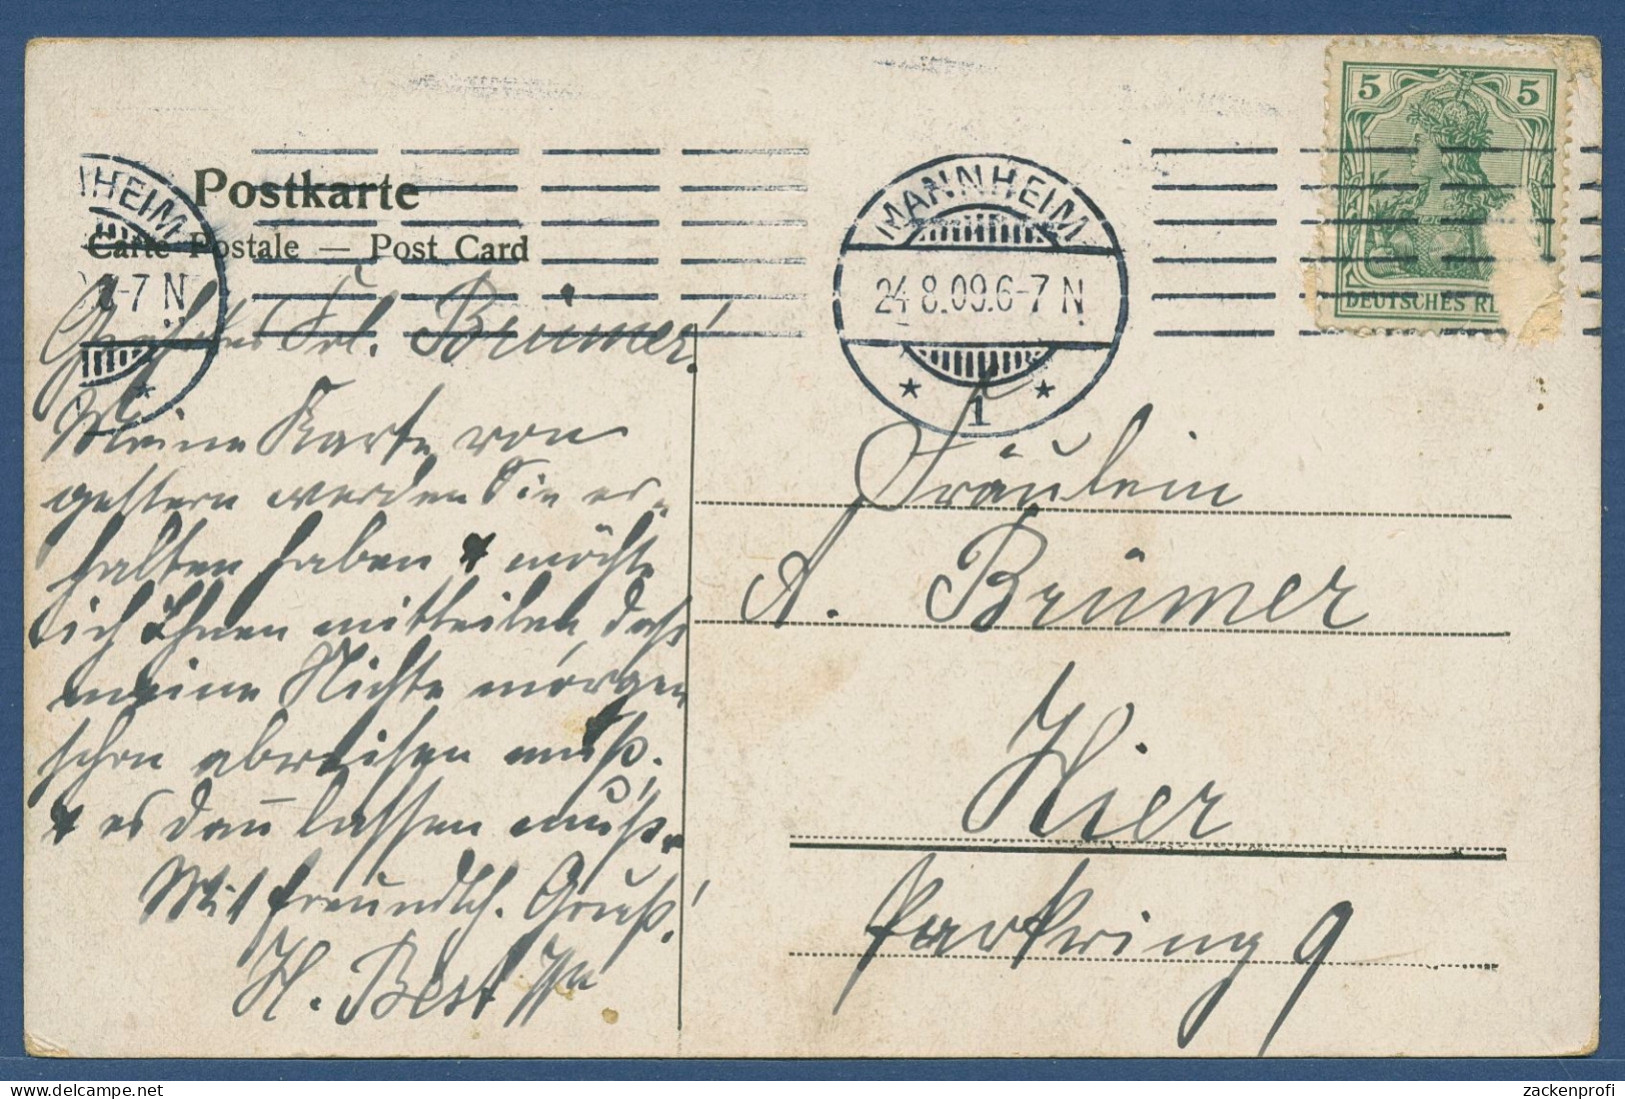 Postkarte
Carte Postale — Post Card
NHEIM
7-7 N
MANNHEIM
24.8.09.6-7 N
* 1 *
5 5
DEUTSCHES RE
Geehrtes Frl. Brümer!
Meine Karte von
gestern werden Sie er-
halten haben & möchte
ich Ihnen mitteilen, daß
meine Nichte morgen
schon abreisen muß,
& es dann lassen muß.
Mit freundlch. Gruß!
H. Best
Fräulein
A. Brümer
Hier
Parkring 9
©zackenprofi
zackenprofi